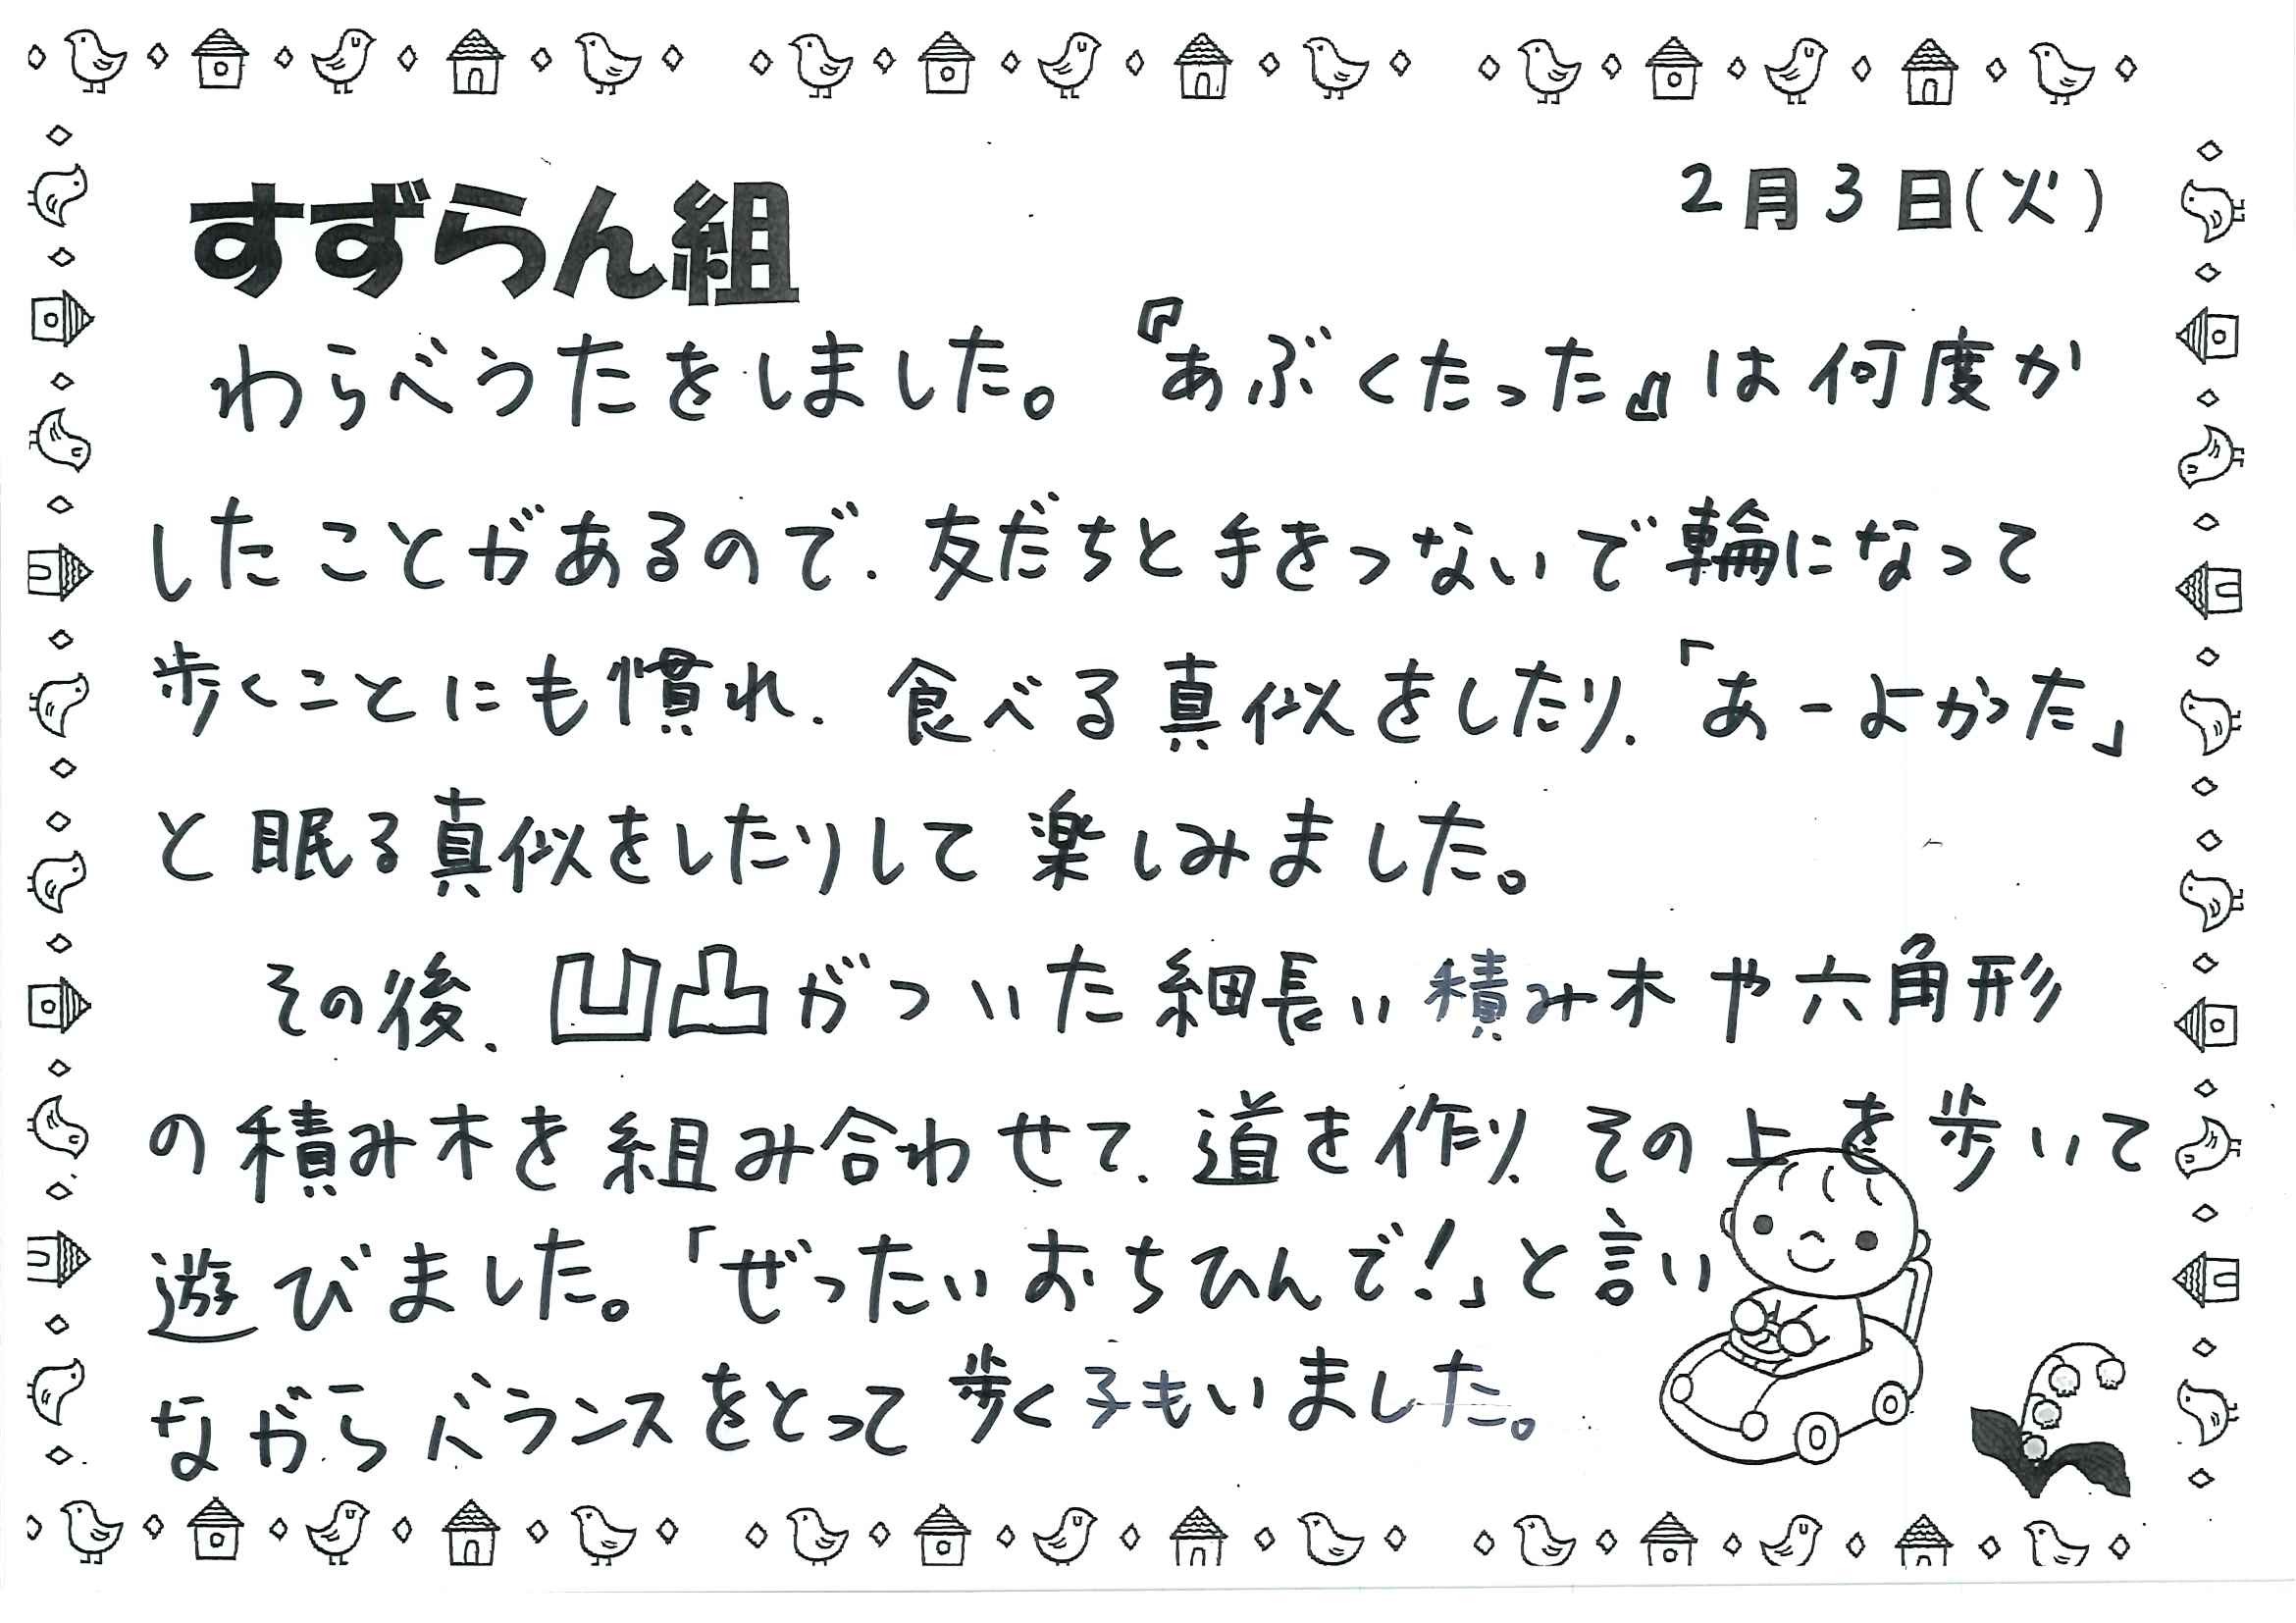 すずらん組
2月3日(火)
わらべうたをしました。『あぶくたった』は何度か
したことがあるので、友だちと手をつないで輪になって
歩くことにも慣れ、食べる真似をしたり、「あーよかった」
と眠る真似をしたりして楽しみました。
その後、凹凸がついた細長い積み木や六角形
の積み木を組み合わせて、道を作り、その上を歩いて
遊びました。「ぜったいおちひんで!」と言い
ながらバランスをとって歩く子もいました。